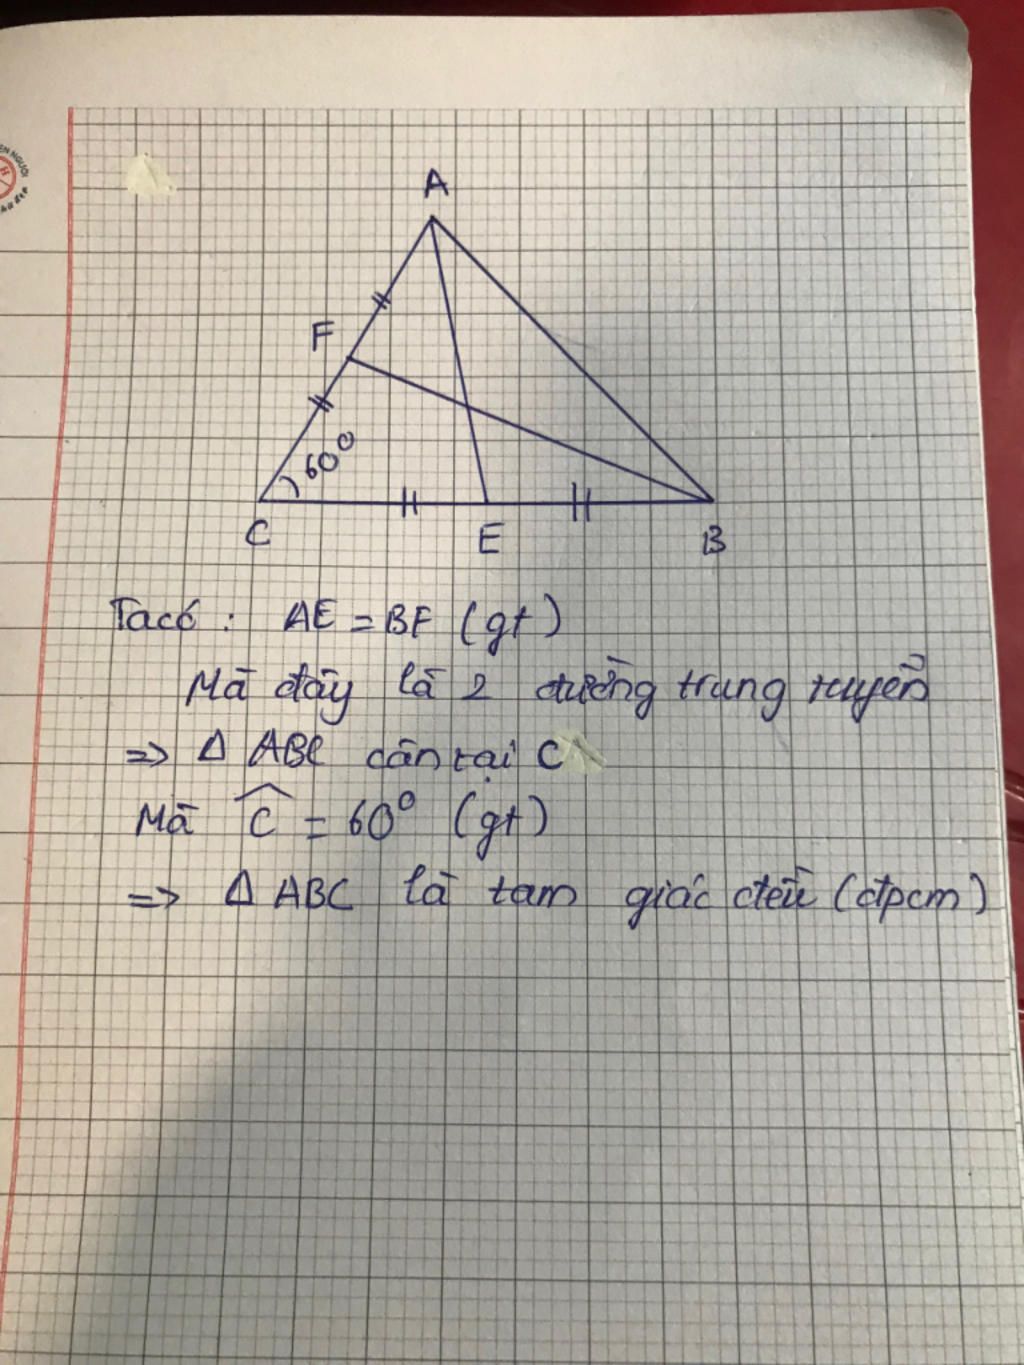 A
F
60°
C
E
B
Ta có : AE = BF (gt)
Mà đây là 2 đường trung tuyến
=> Δ ABC cân tại C
Mà Ĉ = 60° (gt)
=> Δ ABC là tam giác đều (đpcm)